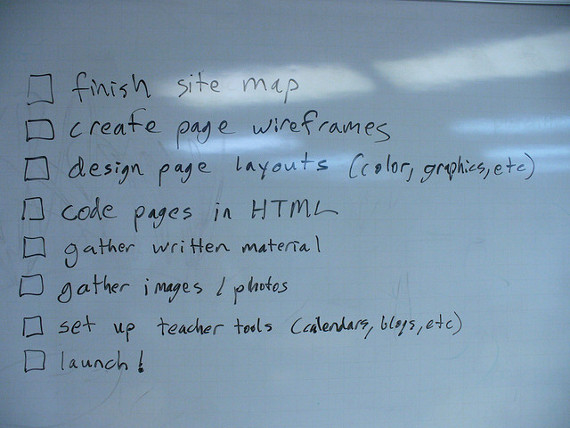 finish site map
create page wireframes
design page layouts (color, graphics, etc)
code pages in HTML
gather written material
gather images / photos
set up teacher tools (calendars, blogs, etc)
launch!